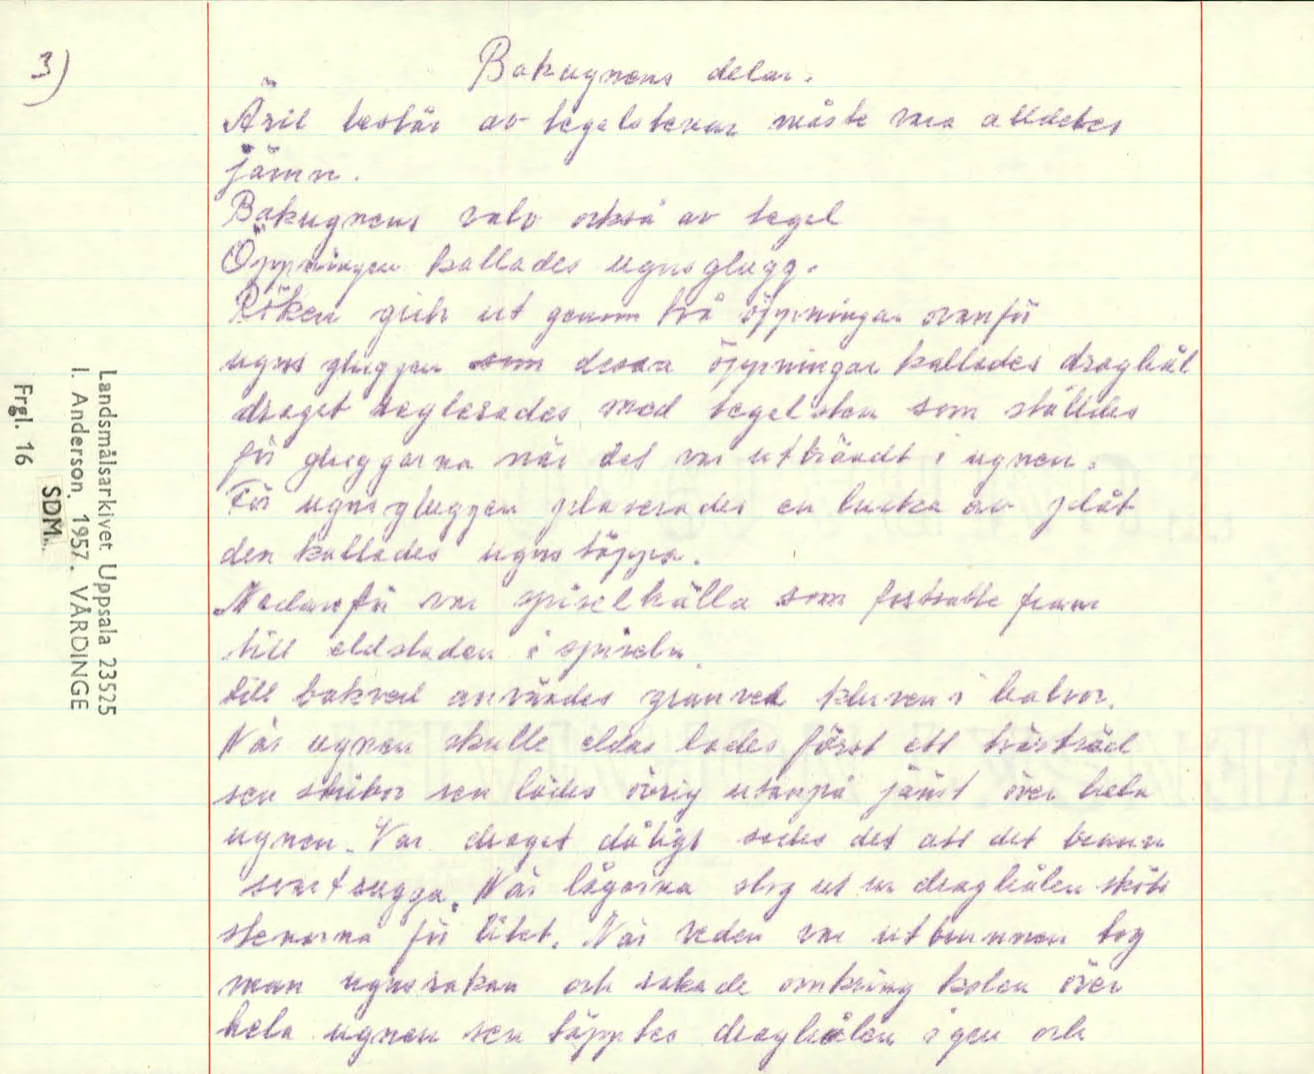 3)
Bakugnens delar.
Äril består av tegelstenar måste vara alldeles
jämn.
Bakugnens valv också av tegel
Öppningen kallades ugnsglugg.
Röken gick ut genom två öppningar ovanför
ugnsgluggen som dessa öppningar kallades draghål
draget reglerades med tegelsten som ställdes
för gluggarna när det var utbrändt i ugnen.
För ugnsgluggen placerades en lucka av plåt
den kallades ugnstäppa.
Nedanför var spiselhälla som fortsatte fram
till eldstaden i spiseln
till bakved användes granved kluven i halvor.
När ugnen skulle eldas lades först ett tvärträd
sen stickor sen lades övrig utanpå jämt över hela
ugnen. Var draget dåligt sades det att det brann
svartsugga. När lågorna slog ut ur draghålen sköts
stenarna för litet. När veden var utbrunnen tog
man ugnsrakan och rakade omkring kolen över
hela ugnen sen täpptes draghålen igen och
Landsmålsarkivet Uppsala 23525
I. Anderson. 1957. VÅRDINGE
SDM.
Frgl. 16